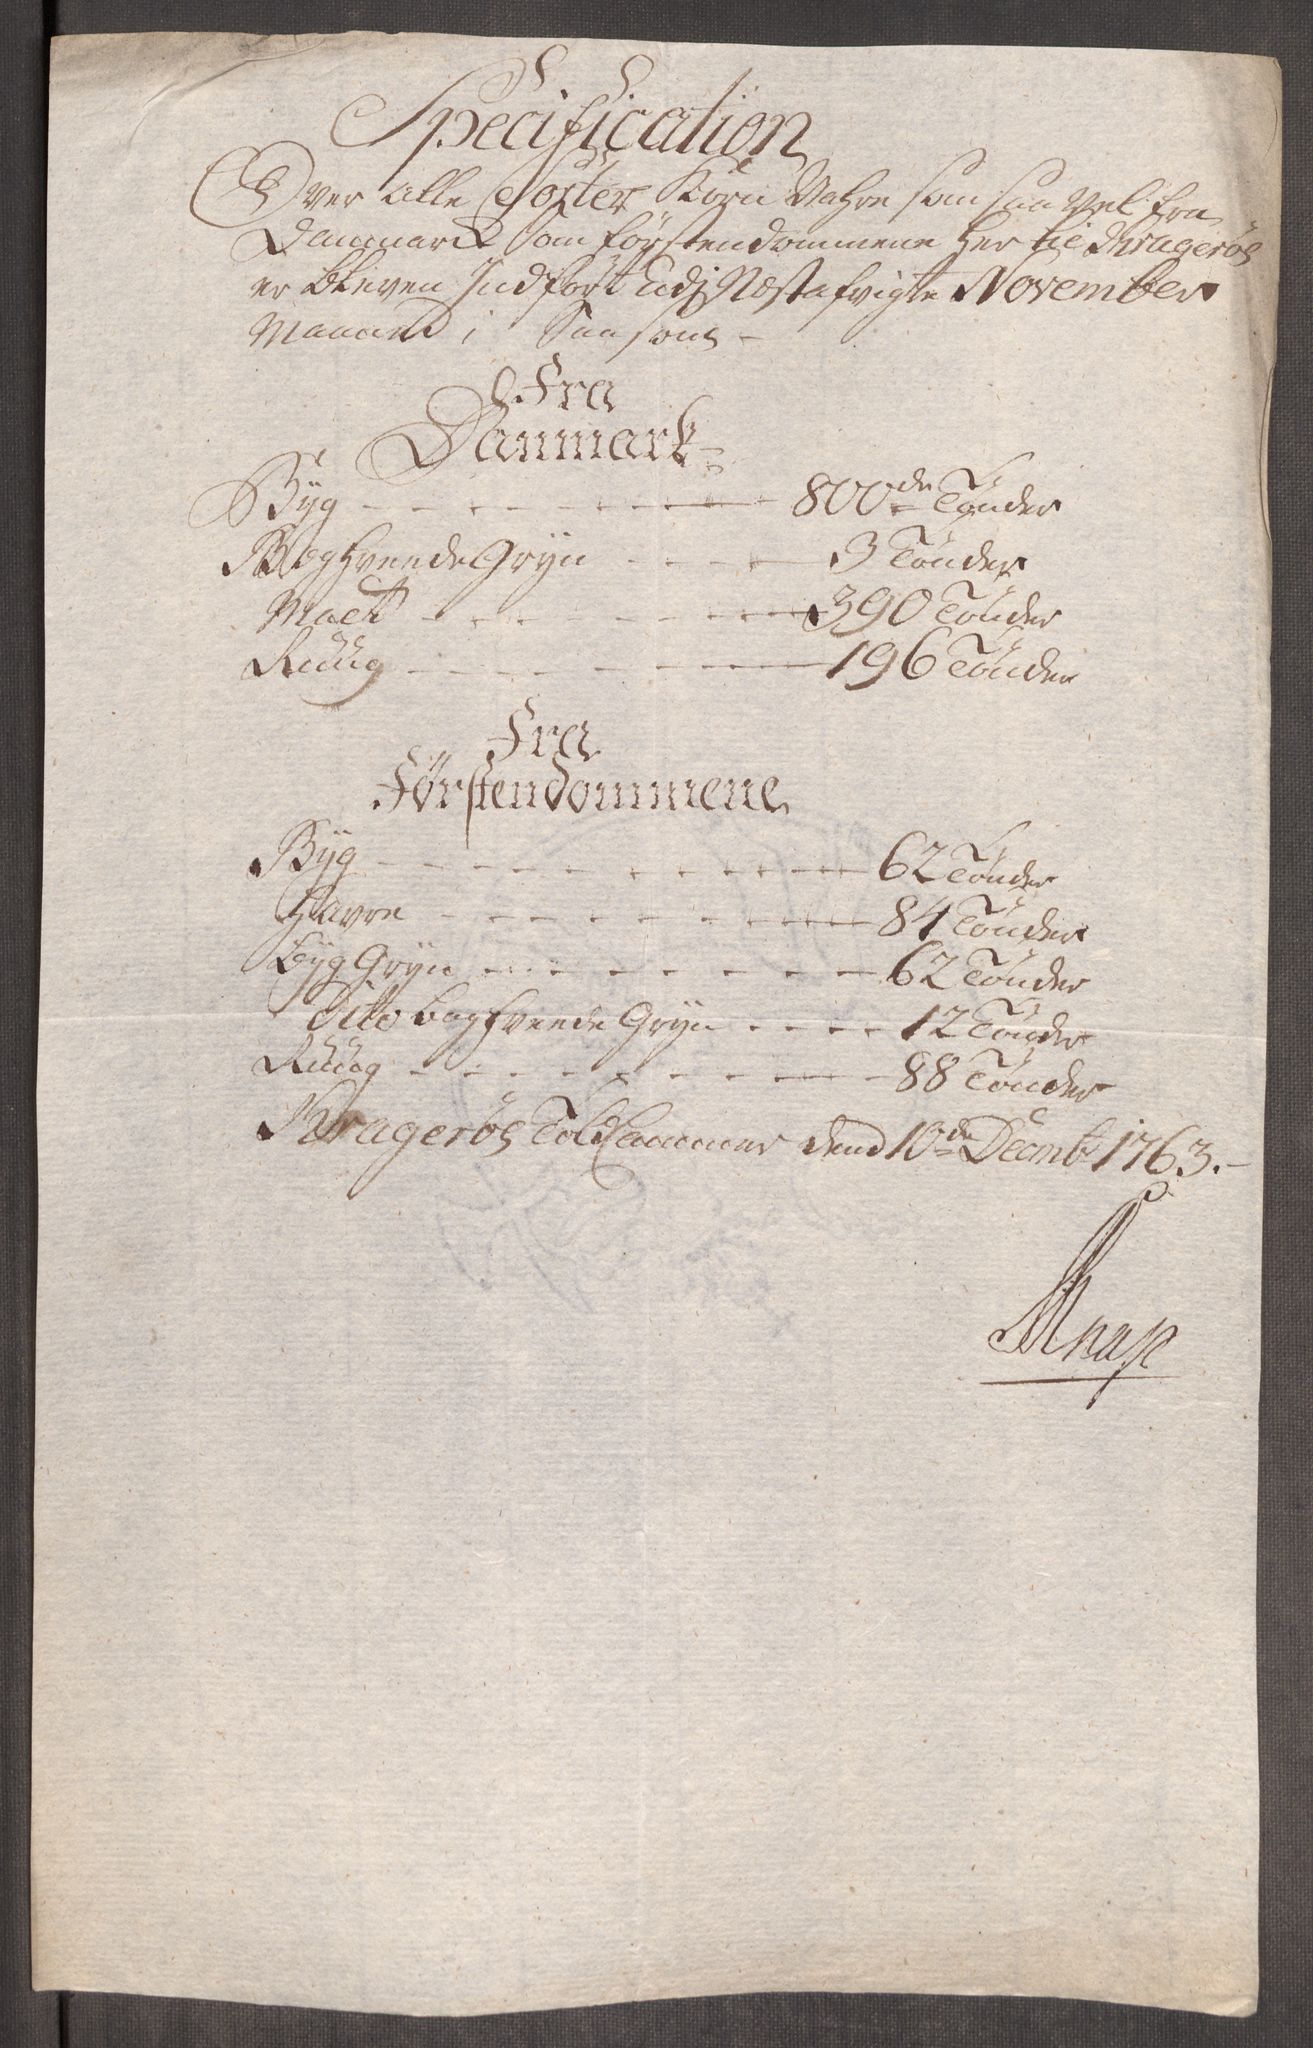 Specification
Over alle Sorter Korn Vahre som saa vel fra
Danmarck som førstendommene her til Kragerøe
er bleven Indført udj Næstafvigte November
Maaned i Saasom -
Fra
Danmark
Byg - - - - - - - 800de Tønder
Boghveede Gryn - - - - 3 Tønder
Malt - - - - - - - 390 Tønder
Ruug - - - - - - - 196 Tønder
Fra
Førstendommene
Byg - - - - - - - - 62 Tønder
Havre - - - - - - - 84 Tønder
byg Gryn - - - - - - - 62 Tønder
Dito boghveede Gryn - - - - 12 Tønder
Ruug - - - - - - - - 88 Tønder
Kragerøe Told Cammer dend 10de Decmb: 1763.-
Knap